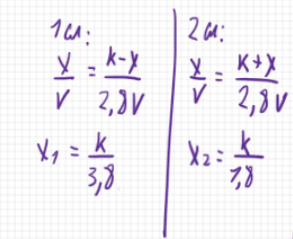 1 сл:
x/v = k-x/2,8v
x₁ = k/3,8
2 сл:
x/v = k+x/2,8v
x₂ = k/1,8